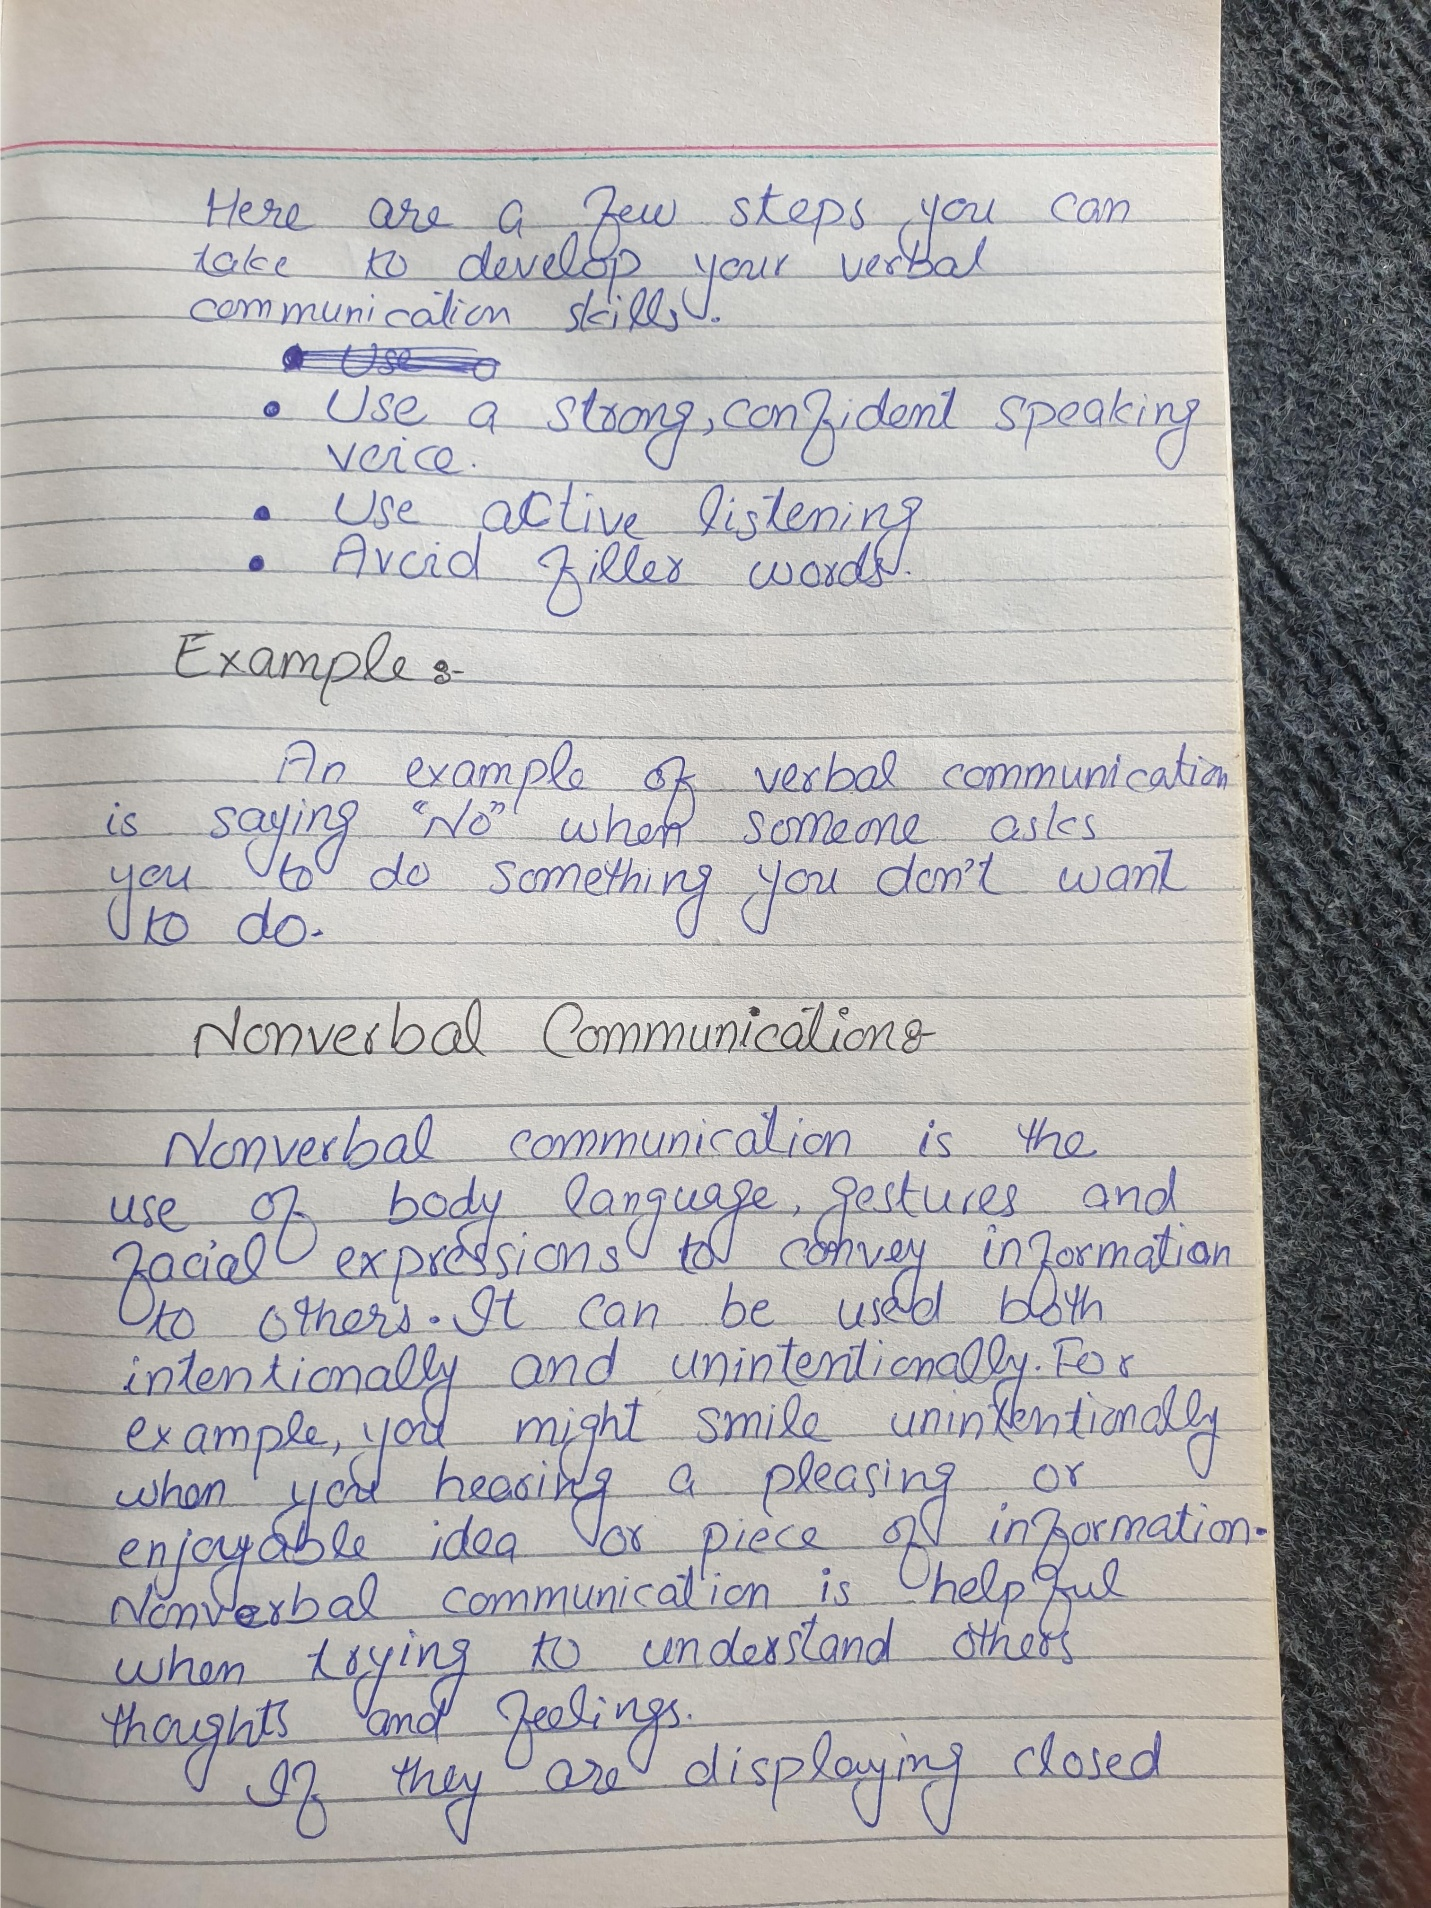 Here are a few steps you can
take to develop your verbal
communication skills.
Use
• Use a strong, confident speaking
voice.
• Use active listening
• Avoid filler words.
Example :-
An example of verbal communication
is saying "No" when someone asks
you to do something you don't want
to do.
Nonverbal Communication :-
Nonverbal communication is the
use of body language, gestures and
facial expressions to convey information
to others. It can be used both
intentionally and unintentionally. For
example, you might smile unintentionally
when you hearing a pleasing or
enjoyable idea or piece of information.
Nonverbal communication is helpful
when trying to understand others
thoughts and feelings.
If they are displaying closed